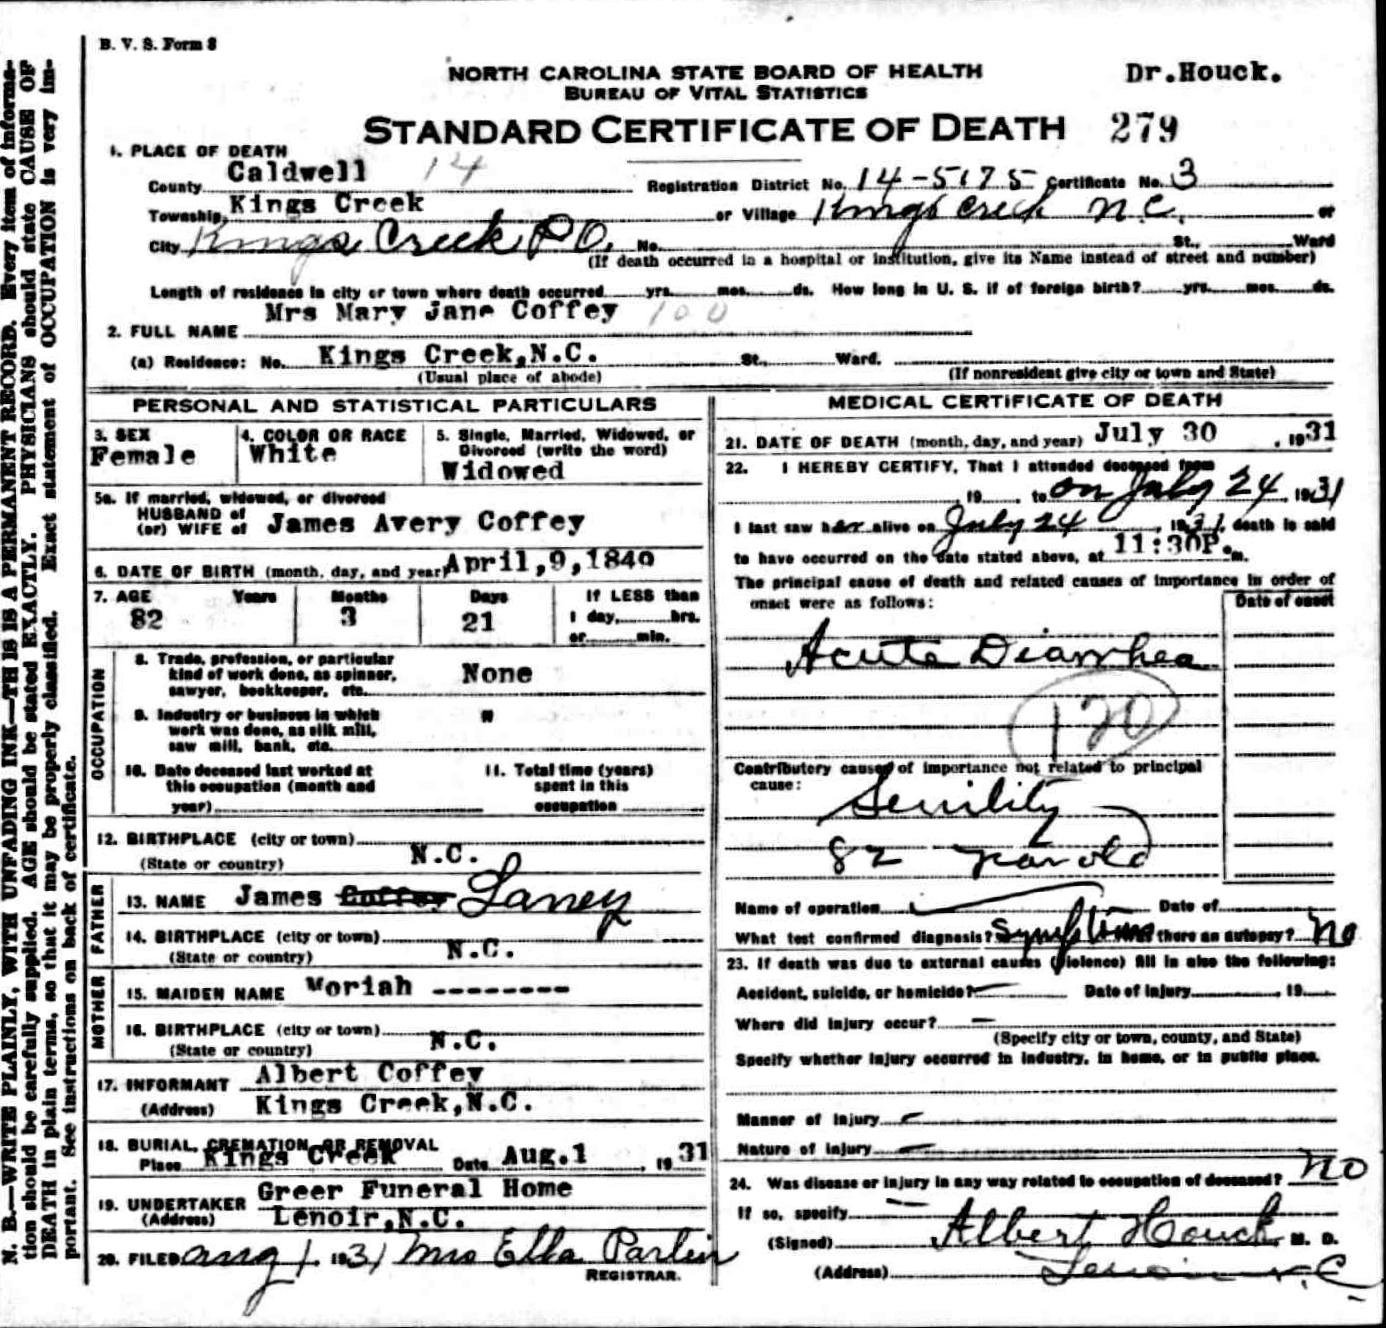 B. V. S. Form 8
NORTH CAROLINA STATE BOARD OF HEALTH
Dr.Houck.
BUREAU OF VITAL STATISTICS
STANDARD CERTIFICATE OF DEATH 279
1. PLACE OF DEATH
County Caldwell 14 Registration District No. 14-5175 Certificate No. 3
Township Kings Creek or Village Kings Creek N.C. or
City Kings Creek P.O. No. St., Ward
(If death occurred in a hospital or institution, give its Name instead of street and number)
Length of residence in city or town where death occurred yrs. mos. ds. How long in U. S. if of foreign birth? yrs. mos. ds.
2. FULL NAME Mrs Mary Jane Coffey 100
(a) Residence: No. Kings Creek,N.C. St., Ward.
(Usual place of abode) (If nonresident give city or town and State)
PERSONAL AND STATISTICAL PARTICULARS
3. SEX Female
4. COLOR OR RACE White
5. Single, Married, Widowed, or Divorced (write the word)
Widowed
5a. If married, widowed, or divorced
HUSBAND of
(or) WIFE of James Avery Coffey
6. DATE OF BIRTH (month, day, and year) April,9,1849
7. AGE Years Months Days If LESS than
82 3 21 1 day, hrs.
or min.
OCCUPATION
8. Trade, profession, or particular
kind of work done, as spinner, None
sawyer, bookkeeper, etc.
9. Industry or business in which "
work was done, as silk mill,
saw mill, bank, etc.
10. Date deceased last worked at
this occupation (month and
year)
11. Total time (years)
spent in this
occupation
12. BIRTHPLACE (city or town)
(State or country) N.C.
FATHER
13. NAME James Coffey Laney
14. BIRTHPLACE (city or town)
(State or country) N.C.
MOTHER
15. MAIDEN NAME Moriah ---------
16. BIRTHPLACE (city or town)
(State or country) N.C.
17. INFORMANT Albert Coffey
(Address) Kings Creek,N.C.
18. BURIAL, CREMATION OR REMOVAL
Place Kings Creek Date Aug.1, 1931
19. UNDERTAKER Greer Funeral Home
(Address) Lenoir,N.C.
20. FILED Aug 1. 1931 Mrs Ella Parlier
REGISTRAR.
MEDICAL CERTIFICATE OF DEATH
21. DATE OF DEATH (month, day, and year) July 30, 1931
22. I HEREBY CERTIFY, That I attended deceased from
, 19 to on July 24, 1931
I last saw her alive on July 24, 1931, death is said
to have occurred on the date stated above, at 11:30P.m.
The principal cause of death and related causes of importance in order of
onset were as follows: Date of onset
Acute Diarrhea
120
Contributory causes of importance not related to principal
cause:
Senility
82 years old
Name of operation Date of
What test confirmed diagnosis? Symptoms Was there an autopsy? No
23. If death was due to external causes (violence) fill in also the following:
Accident, suicide, or homicide? Date of injury , 19
Where did injury occur?
(Specify city or town, county, and State)
Specify whether injury occurred in industry, in home, or in public place.
Manner of injury
Nature of injury
24. Was disease or injury in any way related to occupation of deceased? No
If so, specify
(Signed) Albert Houck M. D.
(Address) Lenoir N.C.
N. B.—WRITE PLAINLY, WITH UNFADING INK—THIS IS A PERMANENT RECORD. Every item of informa-
tion should be carefully supplied. AGE should be stated EXACTLY. PHYSICIANS should state CAUSE OF
DEATH in plain terms, so that it may be properly classified. Exact statement of OCCUPATION is very im-
portant. See instructions on back of certificate.